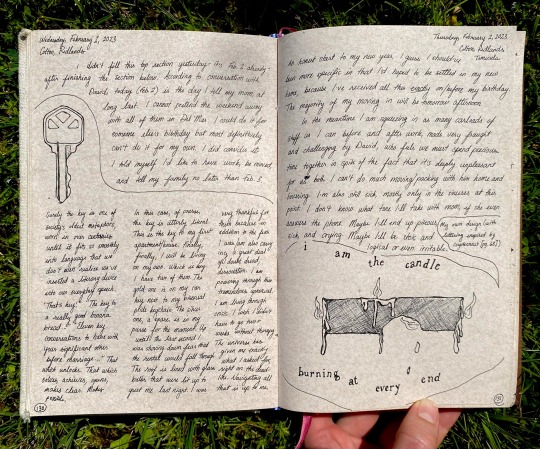 Wednesday, February 1, 2023
Colton, Redlands
I didn't fill this top section yesterday - it's Feb 2 already -
after finishing the section below. According to conversation with
David, today (Feb 2) is the day I tell my mom at
long last. I cannot pretend the weekend away
with all of them in Del Mar. I could do it for
someone else's birthday but most definitively
can't do it for my own. I did consider it.
I told myself I'd like to have work, be moved,
and tell my family no later than Feb 3.
Surely the key is one of
society's oldest metaphors,
worn in our cultures
until it fits so smoothly
into language that we
don't even realize we've
inserted a literary device
into our everyday speech.
"That's key." "The key to
a really good banana
bread." "Eleven key
conversations to have with
your significant other
before marriage." That
which unlocks. That which
solves, achieves, opens,
makes clear. Makes
possible.
In this case, of course,
the key is utterly literal.
This is the key to my first
apartment/house. Finally,
finally, I will be living
on my own. Which is key.
I have two of them. The
gold one is on my car
key next to my
plate keychain. The silver
one, a spare, is in my
purse for the moment. Up
until the last second I
was shoving down fears that
the rental would fall through.
The roof is lined with glass
that were lit up to
greet me last night. I was
very thankful for
them because in
addition to the fear
I was also carry-
ing a great deal
of doubt, dread,
dissociation. I am
powering through this
tremendous upheaval.
I am living through
once. I wish I didn't
have to go two
weeks without therapy.
The universe has
given me exactly
what I asked for,
right on the dead-
line. Navigating all
that is up to me.
138
Thursday, February 2, 2023
Colton, Redlands
Temecula
An honest start to my new year, I guess. I should've
been more specific in that I'd hoped to be settled in my new
home, because I've received all this exactly on/before my birthday.
The majority of my moving in will be tomorrow afternoon.
In the meantime I am squeezing in as many carloads of
stuff as I can before and after work, made very fraught
and challenging by David, who feels we must spend precious
time together in spite of the fact that it's deeply unpleasant
for us both. I can't do much moving/packing with him home and
fussing. I'm also still sick, mostly only in the sinuses at this
point. I don't know what tone I'll take with mom, if she even
answers the phone. Maybe I'll end up piteous,
sick, and crying. Maybe I'll be stoic and
logical or even irritable.
My own design (with
lettering inspired by
i am the candle
burning at every end
139